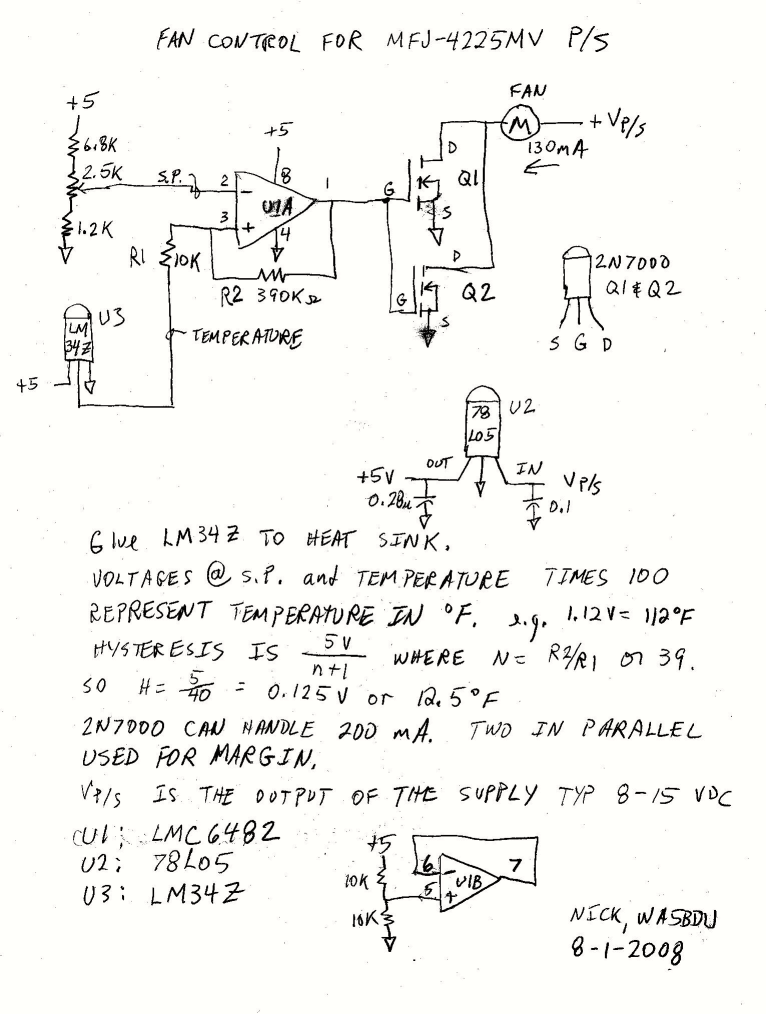 FAN CONTROL FOR MFJ-4225MV P/S
+5
6.8K
2.5K
S.P.
1.2K
+5
2
8
1
U1A
3
4
R1
10K
R2 390KΩ
TEMPERATURE
U3
LM
34Z
+5
FAN
M
+ VP/S
130mA
D
G
Q1
S
D
G
Q2
S
2N7000
Q1 & Q2
S G D
U2
78
L05
OUT
IN
+5V
VP/S
0.28u
0.1
Glue LM34Z TO HEAT SINK.
VOLTAGES @ S.P. and TEMPERATURE TIMES 100
REPRESENT TEMPERATURE IN °F. e.g. 1.12V = 112°F
HYSTERESIS IS 5V/n+1 WHERE N= R2/R1 or 39.
SO H= 5/40 = 0.125V or 12.5°F
2N7000 CAN HANDLE 200 mA. TWO IN PARALLEL
USED FOR MARGIN.
VP/S IS THE OUTPUT OF THE SUPPLY TYP 8-15 VDC
U1: LMC6482
U2: 78L05
U3: LM34Z
+5
10K
10K
6
5
7
U1B
NICK, WA5BDU
8-1-2008